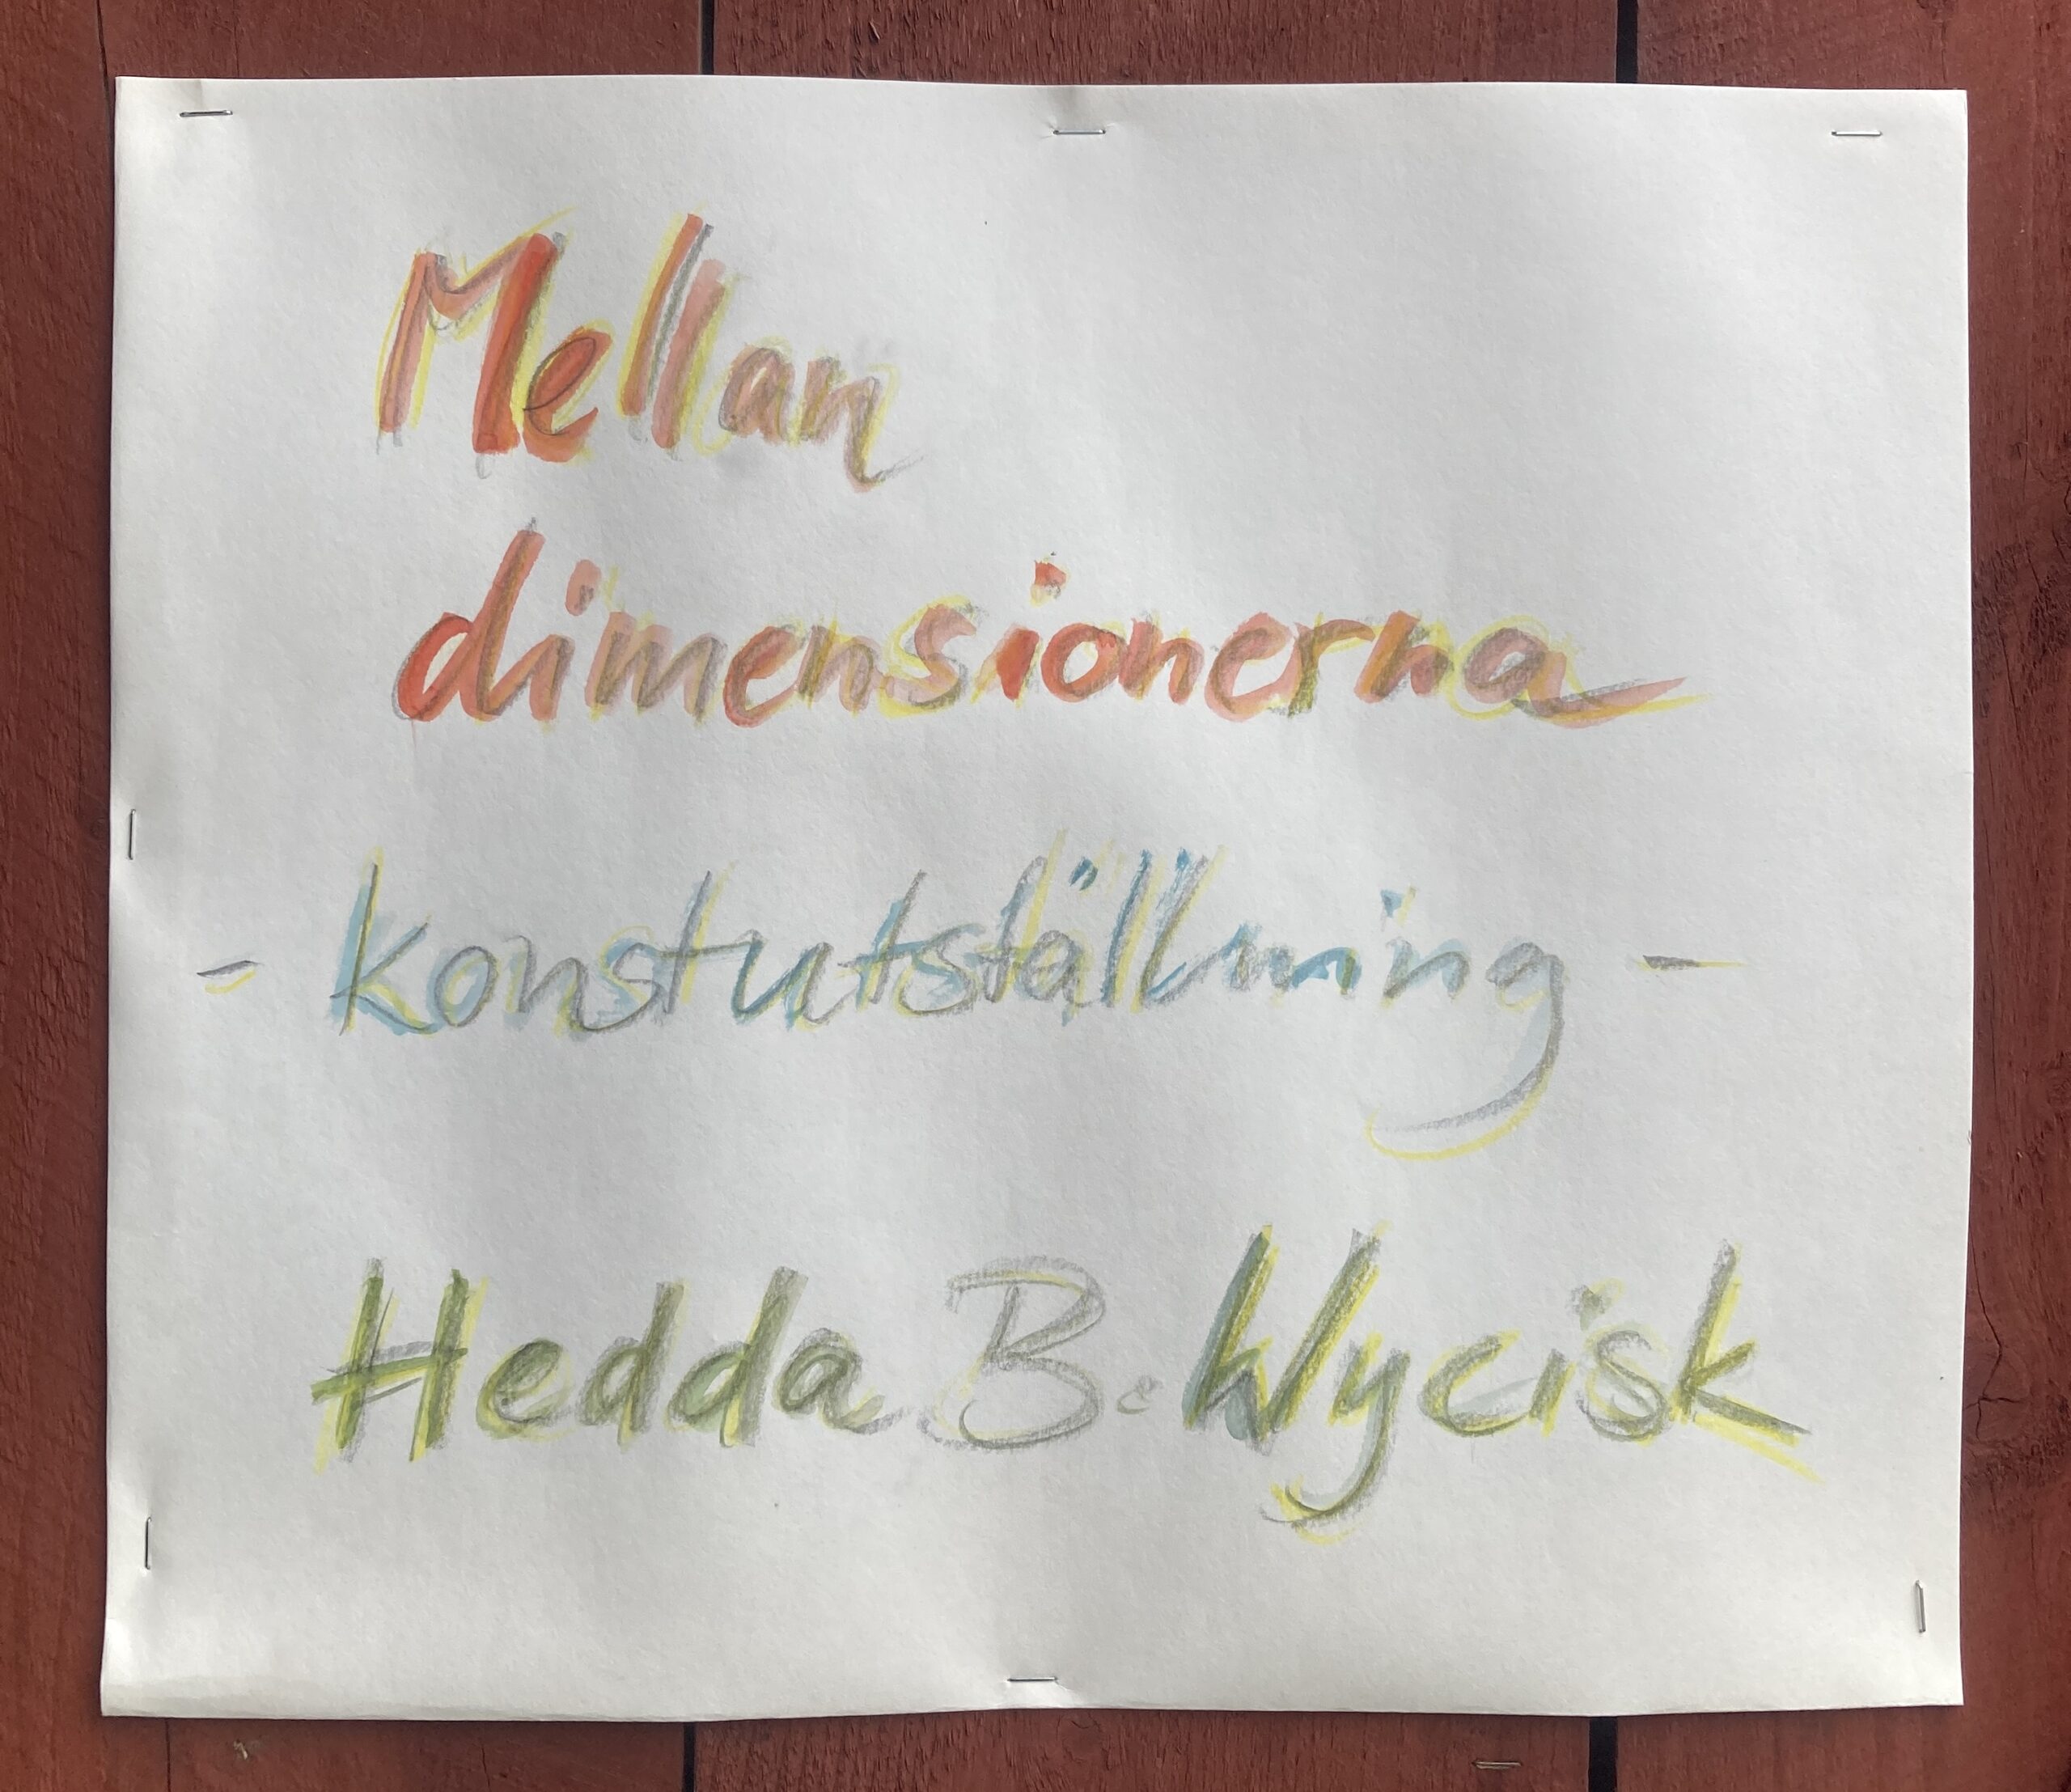 Mellan
dimensionerna
- konstutställning -
Hedda B. Wycisk